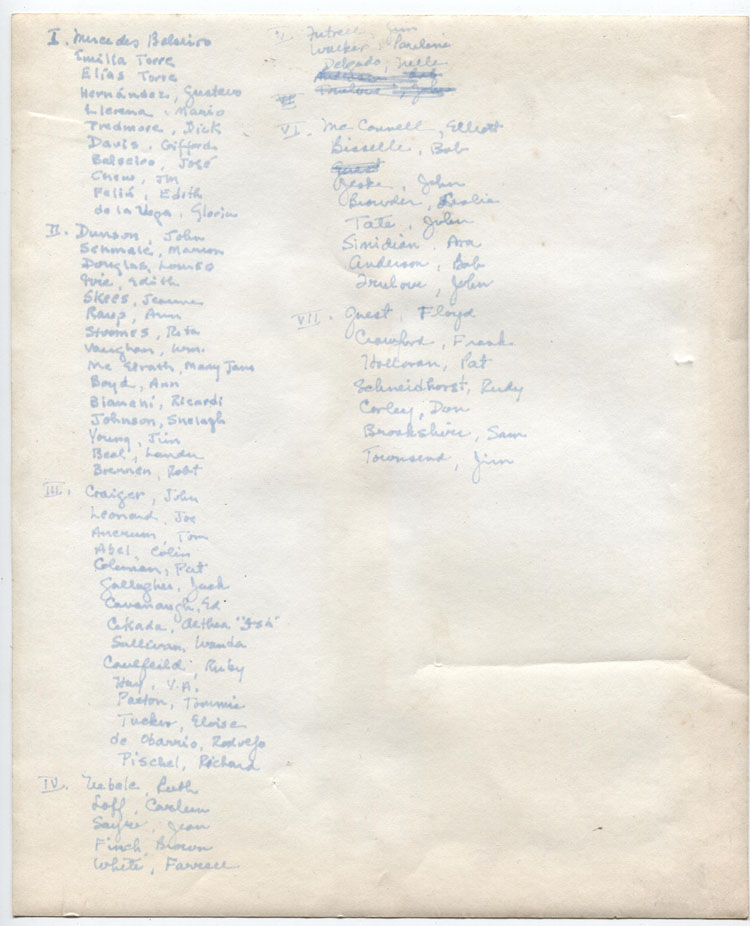 I. Mercedes Balseiro
Emilla Torre
Elías Torre
Hernández, Gustavo
Llerena, Mario
Predmore, Dick
Davis, Gifford
Balseiro, José
Chem, Jim
Feliú, Edith
de la Vega, Gloria
II. Dunson, John
Schmale, Marion
Douglas, Louise
Ivie, Edith
Skees, Jeanne
Raup, Ann
Stroomes, Rita
Vaughan, Wm.
Mc Elrath, Mary Jane
Boyd, Ann
Bianchi, Ricardi
Johnson, Shelagh
Young, Jim
Beal, Lander
Brennen, Robt
III. Craiger, John
Leonard, Joe
Ancrum, Tom
Abel, Colin
Coleman, Pat
Gallagher, Jack
Cavanaugh, Ed
Cekada, Althea "Isa"
Sullivan, Wanda
Caulfeild, Ruby
Hay, V.A.
Paxton, Tommie
Tucker, Eloise
de Obarrio, Rodolfo
Pischel, Richard
IV. Ruth
Loff, Carleen
Sayre, Jean
Finch, Brown
White, Farrell
V. Futrell, Jim
Walker, Pauline
Delgado, Nelle
Trulove, John
VI
VI. Mc Connell, Elliott
Bisselle, Bob
Guest
Geske, John
Browder, Leslie
Tate, John
Simidian, Ara
Anderson, Bob
Trulove, John
VII. Guest, Floyd
Crawford, Frank
Holloran, Pat
Schneidhorst, Rudy
Corley, Don
Brookshire, Sam
Townsend, Jim